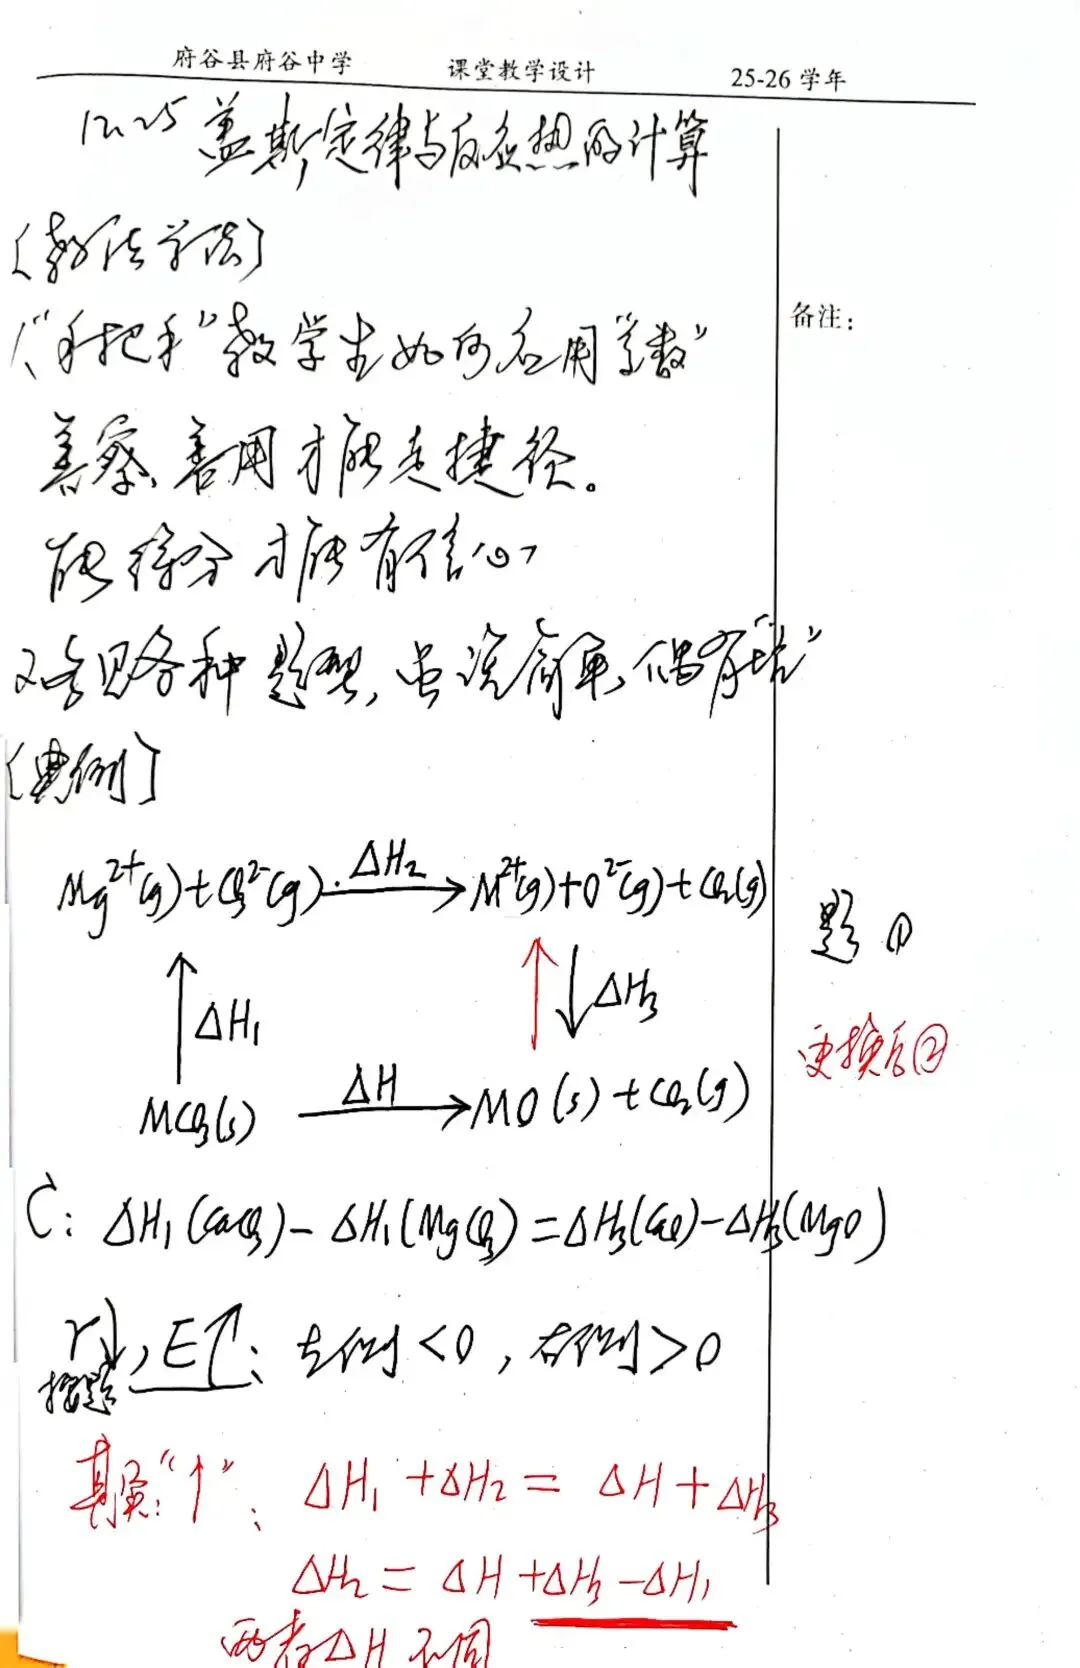 府谷县府谷中学 课堂教学设计 25-26 学年
12.25 盖斯定律与反应热的计算
[教法学法]
1、"手把手"教学生如何应用"参数"
善察、善用才能走捷径。
能得分才能有信心
2、各种题型,虽说简单、偶有"坑"
备注:
[典例]
Mg²⁺(g)+CO₃²⁻(g) ΔH₂ → M²⁺(g)+O²⁻(g)+CO₂(g)
题①
↑ΔH₁ ↑↓ΔH₃
更换后②
MCO₃(s) ΔH → MO(s)+CO₂(g)
C: ΔH₁(CaCO₃)-ΔH₁(MgCO₃)=ΔH₃(CaO)-ΔH₃(MgO)
r↓,E↑: 左侧<0,右侧>0
按题
其实"↑": ΔH₁+ΔH₂=ΔH+ΔH₃
ΔH₂=ΔH+ΔH₃-ΔH₁
两者ΔH不同